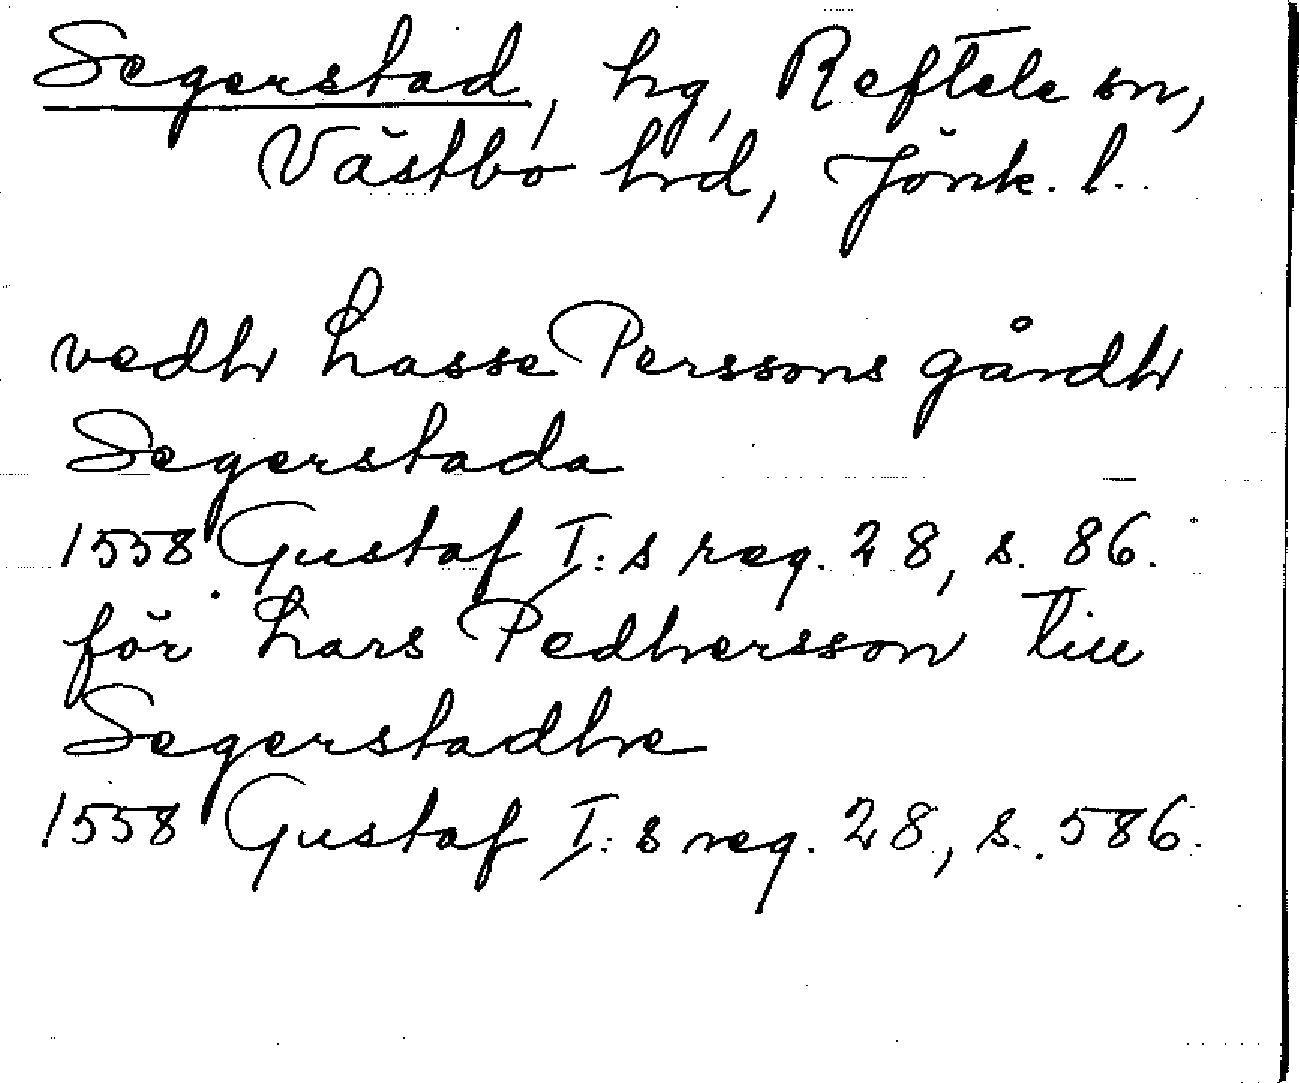 Segerstad, hg, Reftele sn,
Västbo hrd, Jönk. l.
vedh Lasse Perssons gårdh
Segerstada
1558 Gustaf I:s reg. 28, s. 86.
för Lars Pedhersson till
Segerstadhe
1558 Gustaf I:s reg. 28, s. 586.